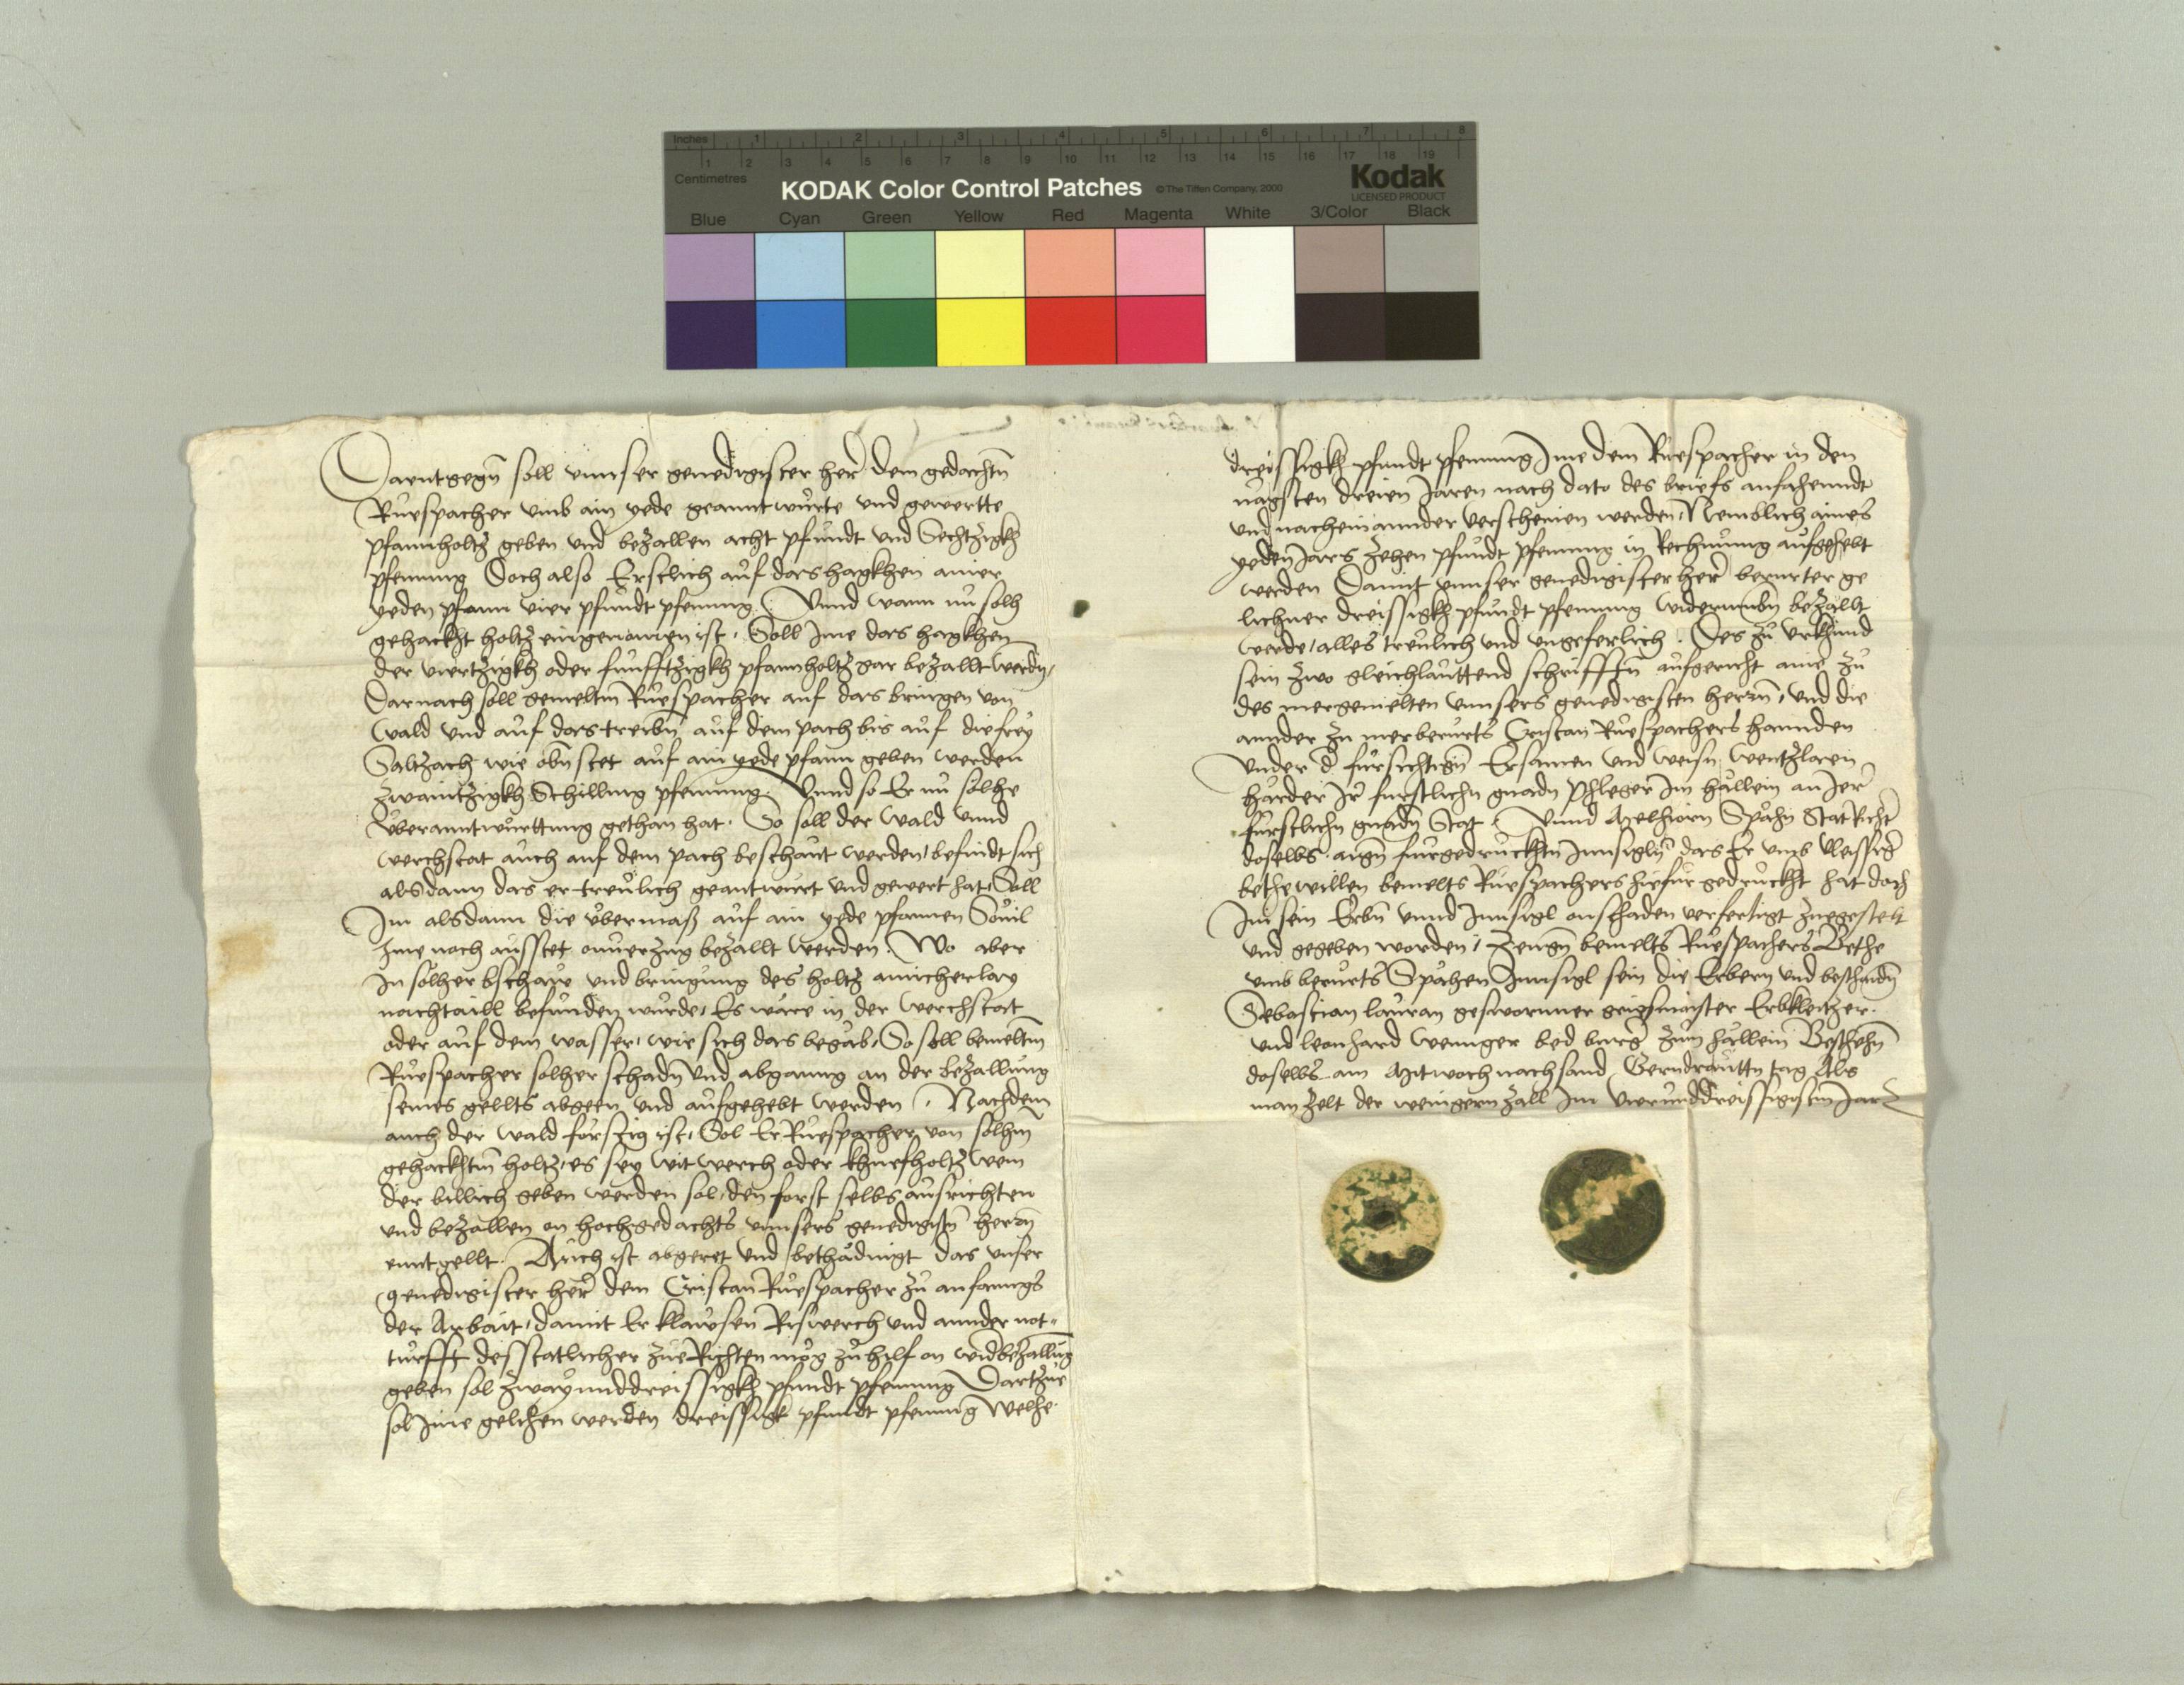 Inches 1 2 3 4 5 6 7 8
1 2 3 4 5 6 7 8 9 10 11 12 13 14 15 16 17 18 19
Centimetres
KODAK Color Control Patches © The Tiffen Company, 2000
Kodak
LICENSED PRODUCT
Blue Cyan Green Yellow Red Magenta White 3/Color Black
Darentgegñ soll vnnser genedigister her dem gedachtñ
Rúespacher vmb ain yede geanntwúrte vnd gewertte
pfannholtz geben vnd bezallen acht pfundt vnd Sechtzigkh
pfenning Doch also Erstlich auf das hagkhen ainer
yeden pfann vier pfúndt pfenning. Vnnd wann nú solh
gehackht holtz eingenomen ist. Soll Ime das hagkhen
der viertzigkh oder funfftzigkh pfannholtz gar bezallt werdñ
Darnach soll gemeltm Rúespacher auf das bringen von
wald vnd aúf das treibñ aúf dem pach bis aúf die frey
Saltzach wie obñ stet aúf ain yede pfann geben werden
zwaintzigkh Schilling pfenning. Vnnd so Er nú solhe
vberanntwúrttung gethan hat. So soll der wald vnnd
werchstat aúch auf dem pach beschaút werden, befindt sich
alsdann das er treúlich geantwúrt vnd gewert hat, Soll
Im alsdann die vbermaß aúf ain yede pfannen Souil
Ime noch aússtet onuerzug bezallt werden. Wo aber
in solher bschaw vnd bringung des holtz ainicherlay
nachtaill befunden wúrde, Es wäre in der werchstat
oder aúf dem wasser, wie sich das begäb, So soll bemeltm
Rúespacher solher schadñ vnd abganng an der bezallung
seines gellts abgeen vnd aúfgehebt werden. Nachdem
auch der wald forstig ist, Sol Er Rúespacher von solhm
gehackhtm holtz, es sey wit werch oder khúefholtz wem
der billich geben werden sol, den forst selbs aúsrichten
vnd bezallen on hochgedachts vnnsers genedigistñ herrñ
enntgellt. Aúch ist abgeret vnd bethädingt das vnser
genedigister her dem Cristan Rúespacher zú anfanngs
der Arbait, damit Er klawsen Riswerch vnd annder not-
túrfft desstatlicher zúe Richten mög zú hilf on widbezallúg
geben sol zwayunddreissigkh pfundt pfenning Dartzúe
sol Ime gelihen werden dreissigk pfundt pfenning welhe
dreissigkh pfundt pfenning Ime dem Rúespacher in den
nägsten dreien Jaren nach dato des briefs anfahenndt
vnd nacheinannder verscheinen werden, Nemblich aines
yeden Jars zehen pfúndt pfenning in Rechnúng aúfgehebt
werden Damit vnnser genedigister her berurter ge
lichner dreissigkh pfúndt pfenning widerumbñ bezallt
werde, alles treulich vnd vngeferlich. Des zú vrkhund
sein zwo gleichlaúttend schrifftñ aúfgericht aine zú
des mergemelten vnnsers genedigisten herrñ, vnd die
annder zu merberurts Cristan Rúespachers hannden
vnder d fúrsichtigñ Ersamen vnd weisñ wentzlaen
hárder Ir furstlichñ gnadñ Phleger Im hällein an Irer
fúrstlichñ gnadñ Stat. Vnnd Melhiorn Spähñ Stat Richt
doselbs aigñ fúrgedrúckhtñ Innsiglñ das Er vmb vleissiğ
bethe willen bemelts Rúespachers hiefúr gedrúckht hat doch
Im sein Erbñ vnnd Innsigl on schaden verfertigt zúegestelt
vnd gegeben worden, Zeugñ bemelts Rúespachers Bethe
vmb berúrts Spähen Innsigl sein die Erbern vnd beschaidñ
Sebastian laúran gesworner griesmaister
vnd leonhard weniger bed burğ zúm hällein Beschehñ
doselbs am Mitwoch nach sand Gerndrauttn tag Als
man zelt der weingern zall Im vierúnddreissigistm Jar